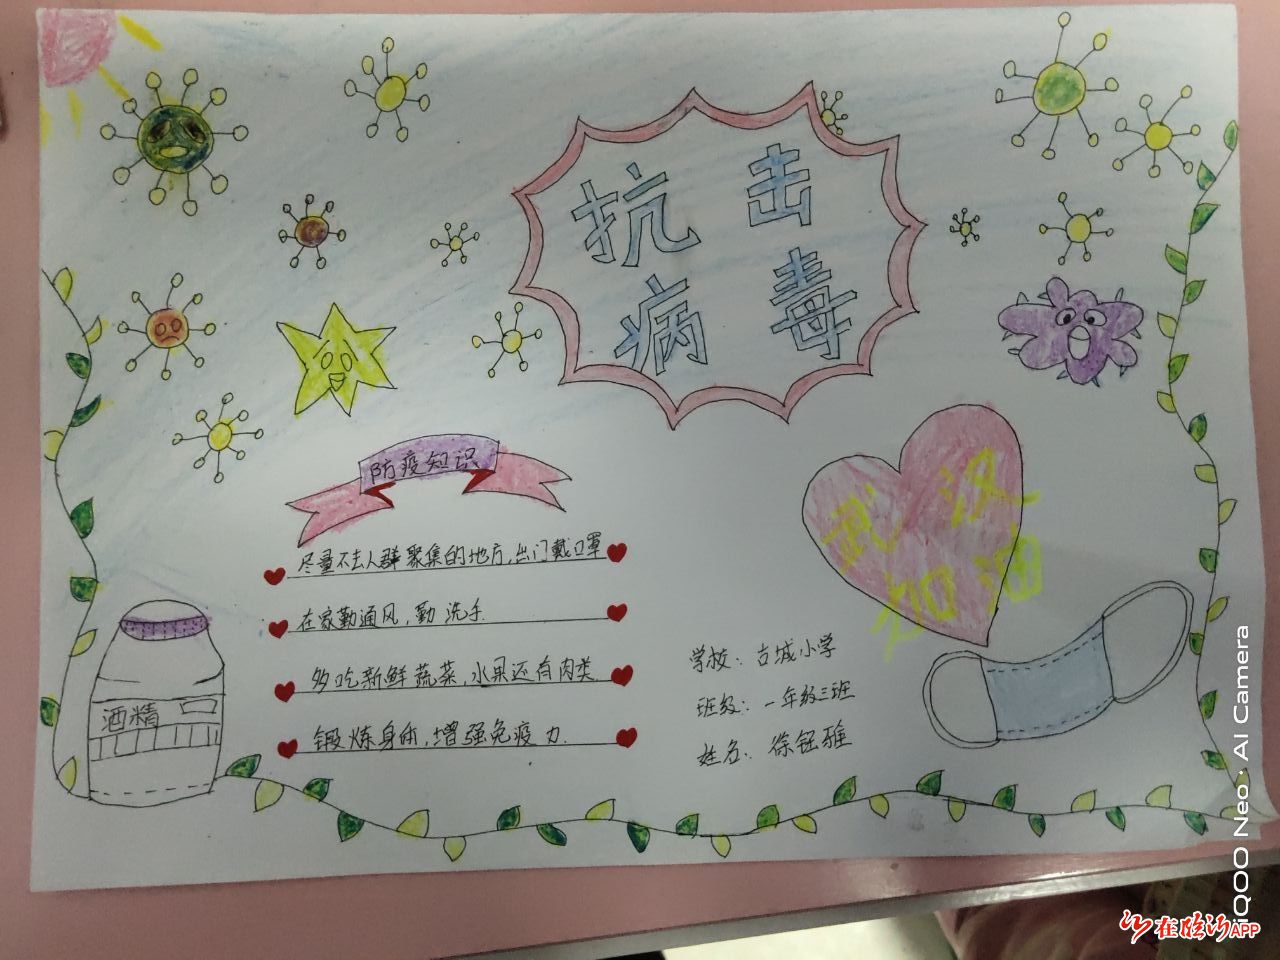 抗击
病毒
防疫知识
尽量不去人群聚集的地方,出门戴口罩
在家勤通风,勤洗手.
多吃新鲜蔬菜,水果还有肉类
锻炼身体,增强免疫力.
酒精
武汉
加油
学校:古城小学
班级:一年级三班
姓名:徐钰雅
iQOO Neo · AI Camera
在临沂APP